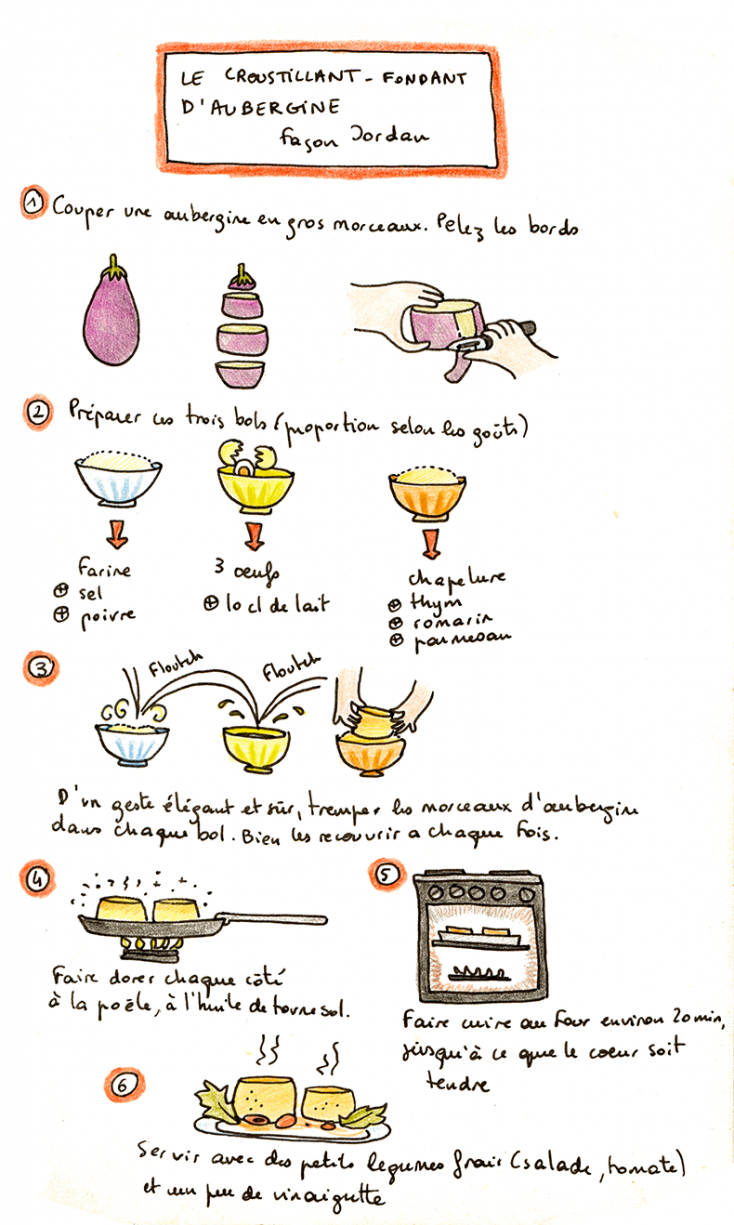 LE CROUSTILLANT - FONDANT
D'AUBERGINE
façon Jordan
1 Couper une aubergine en gros morceaux. Pelez les bords
2 Préparer ces trois bols (proportion selon les goûts)
Farine
⊕ sel
⊕ poivre
3 oeufs
⊕ 10 cl de lait
chapelure
⊕ thym
⊕ romarin
⊕ parmesan
3
Floutch
Floutch
D'un geste élégant et sûr, tremper les morceaux d'aubergine
dans chaque bol. Bien les recouvrir a chaque fois.
4
Faire dorer chaque côté
à la poële, à l'huile de tournesol.
5
Faire cuire au four environ 20 min,
jusqu'à ce que le coeur soit
tendre
6
Servir avec des petits legumes frais (salade, tomate)
et un peu de vinaigrette